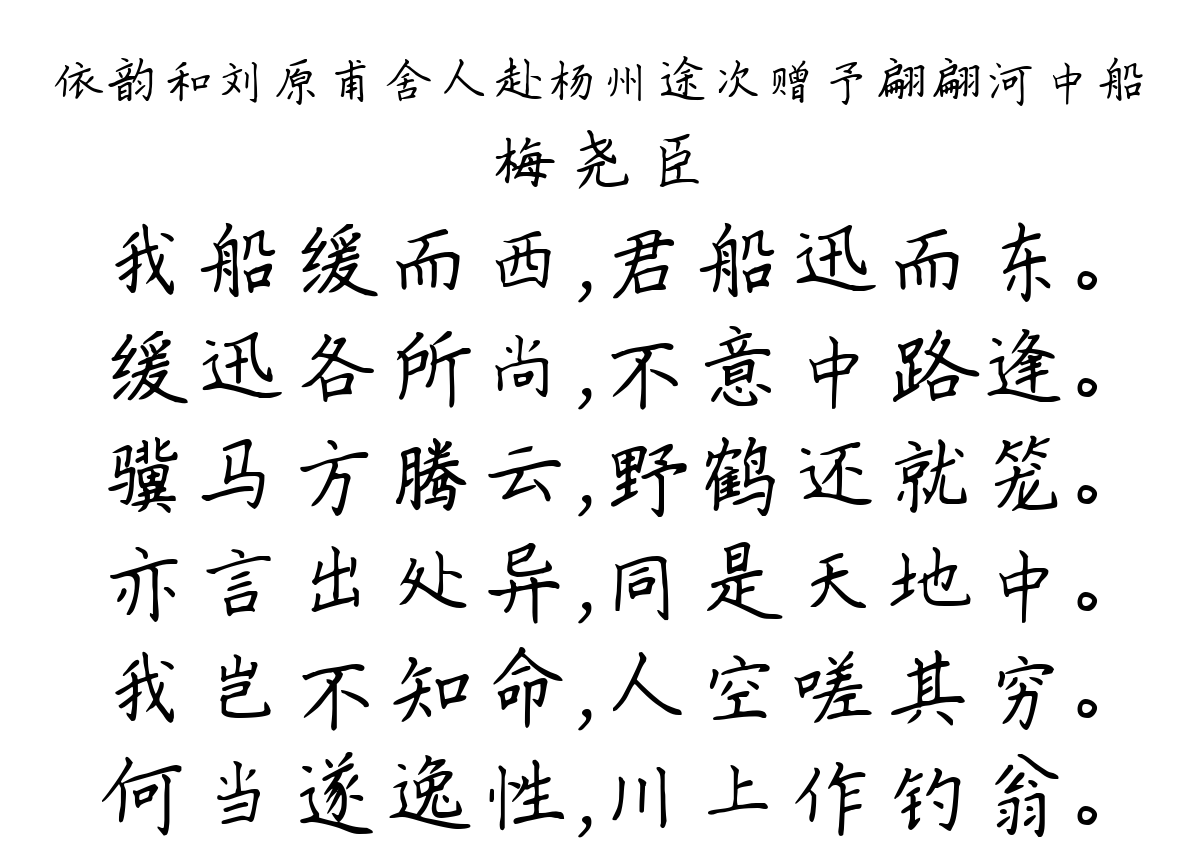 依韵和刘原甫舍人赴杨州途次赠予翩翩河中船
梅尧臣
我船缓而西,君船迅而东。
缓迅各所尚,不意中路逢。
骥马方腾云,野鹤还就笼。
亦言出处异,同是天地中。
我岂不知命,人空嗟其穷。
何当遂逸性,川上作钓翁。